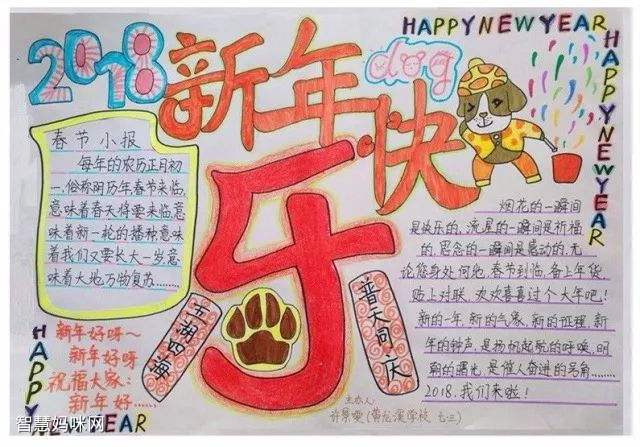 HAPPY NEW YEAR
HAPPY NEW YEAR
2018
新年快
乐
dog
春节小报
每年的农历正月初
一,俗称阴历年春节来临,
意味着春天将要来临,意
味着新一轮的播种意味
着我们又要长大一岁意
味着大地万物复苏……
烟花的一瞬间
是快乐的,流星的一瞬间是祈福
的,思念的一瞬间是感动的,无
论您身处何地,春节到临,备上年货,
贴上对联,欢欢喜喜过个大年吧!
新的一年,新的气象,新的征程,新
年的钟声,是扬帆起航的呼唤,明
朝的曙光,是催人奋进的号角……
2018,我们来啦!
五湖四海
普天同庆
新年好呀~
新年好呀
祝福大家:
新年好……
HAPPY
NEW YEAR
主办人:
(黄龙溪学校 七三)
智慧妈咪网